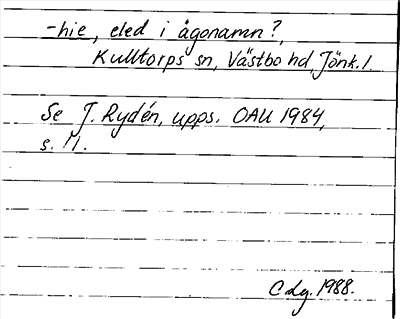 -hie, eled i ägonamn?,
Kulltorps sn, Västbo hd, Jönk. l.
Se J. Rydén, upps. OAU 1984,
s. 11.
CLg. 1988.